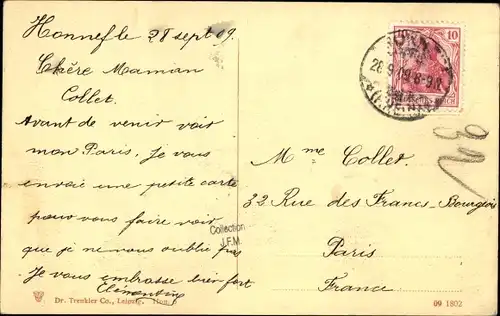 Honnef le 28 sept 09.
Chère Maman
Collet.
Avant de venir voir
mon Paris. Je vous
envoie une petite carte
pour vous faire voir
que je ne vous oublie pas
Je vous embrasse bien fort
Clémentine
Dr. Trenkler Co., Leipzig.
Collection
J.F.M.
10
28.9.09.8-9N.
REICH
Mme Collet.
32 Rue des Francs-Bourgeois
Paris
France.
09 1802